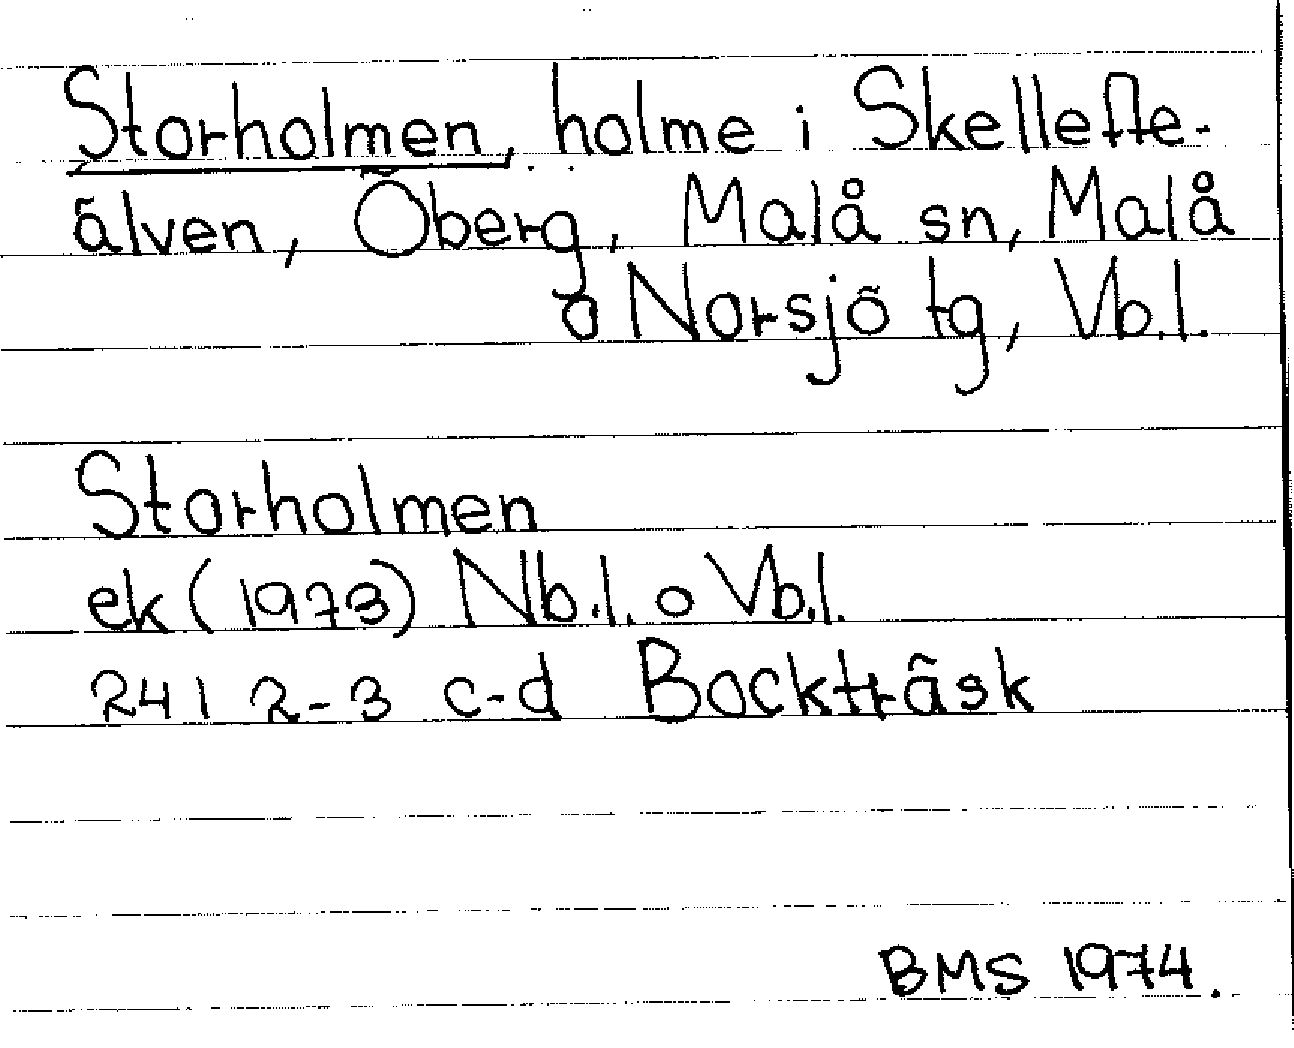 Storholmen, holme i Skellefte-
älven, Öberg, Malå sn, Malå
o Norsjö tg, Vb.l.
Storholmen
ek (1973) Nb.l. o Vb.l.
241 2-3 c-d Bockträsk
BMS 1974.